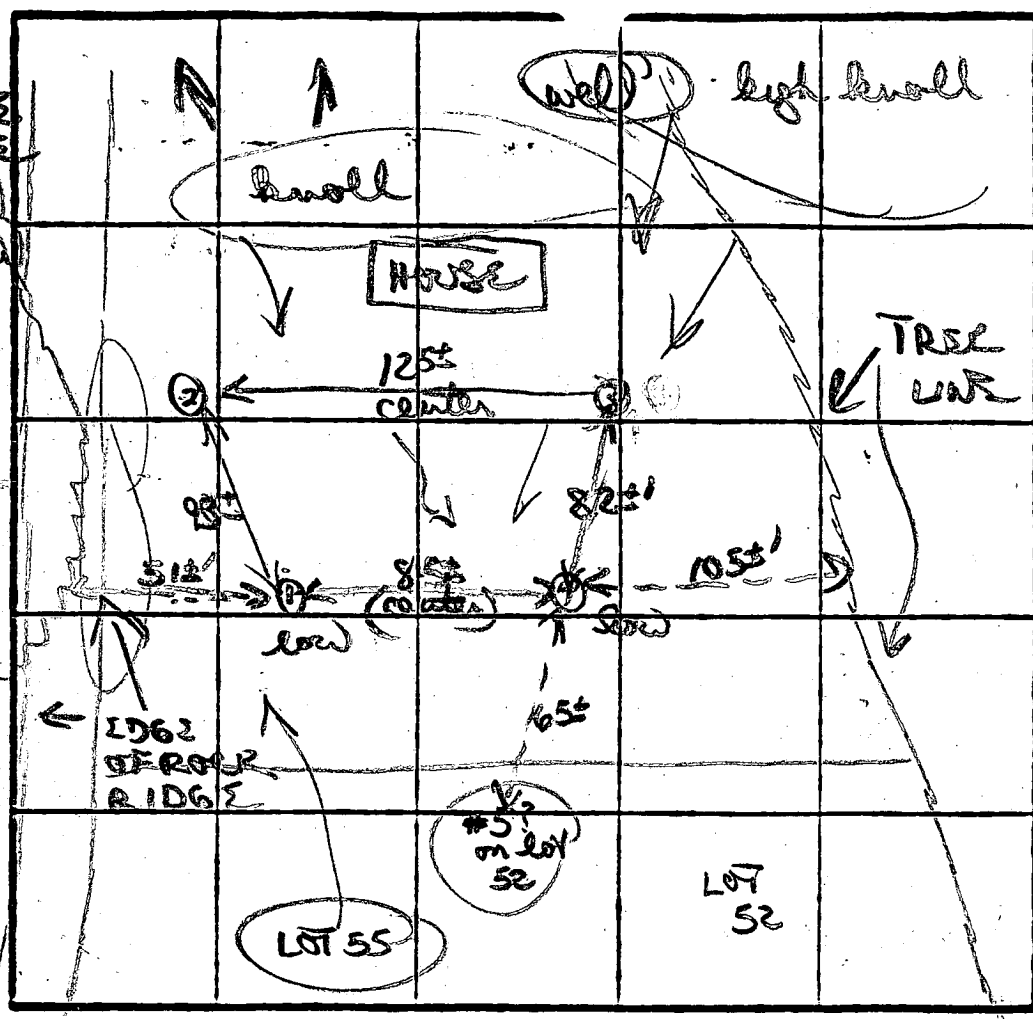 well
high knoll
knoll
HOUSE
TREE
LINE
125±
center
2
3
93±
82±'
51±'
85±
(center)
105±'
1
4
low
low
65±
EDGE
OF ROCK
RIDGE
#5?
on lot
52
LOT
52
LOT 55